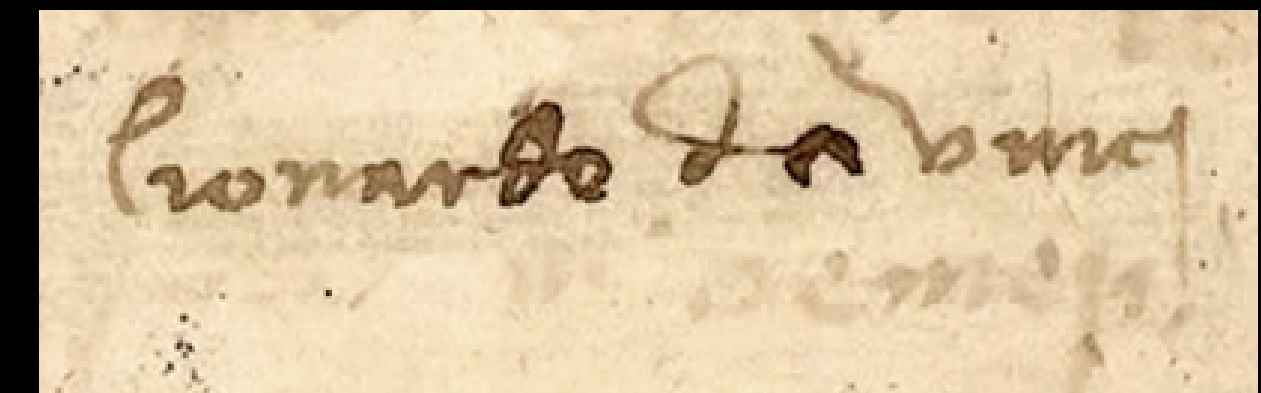 lionardo da vinci